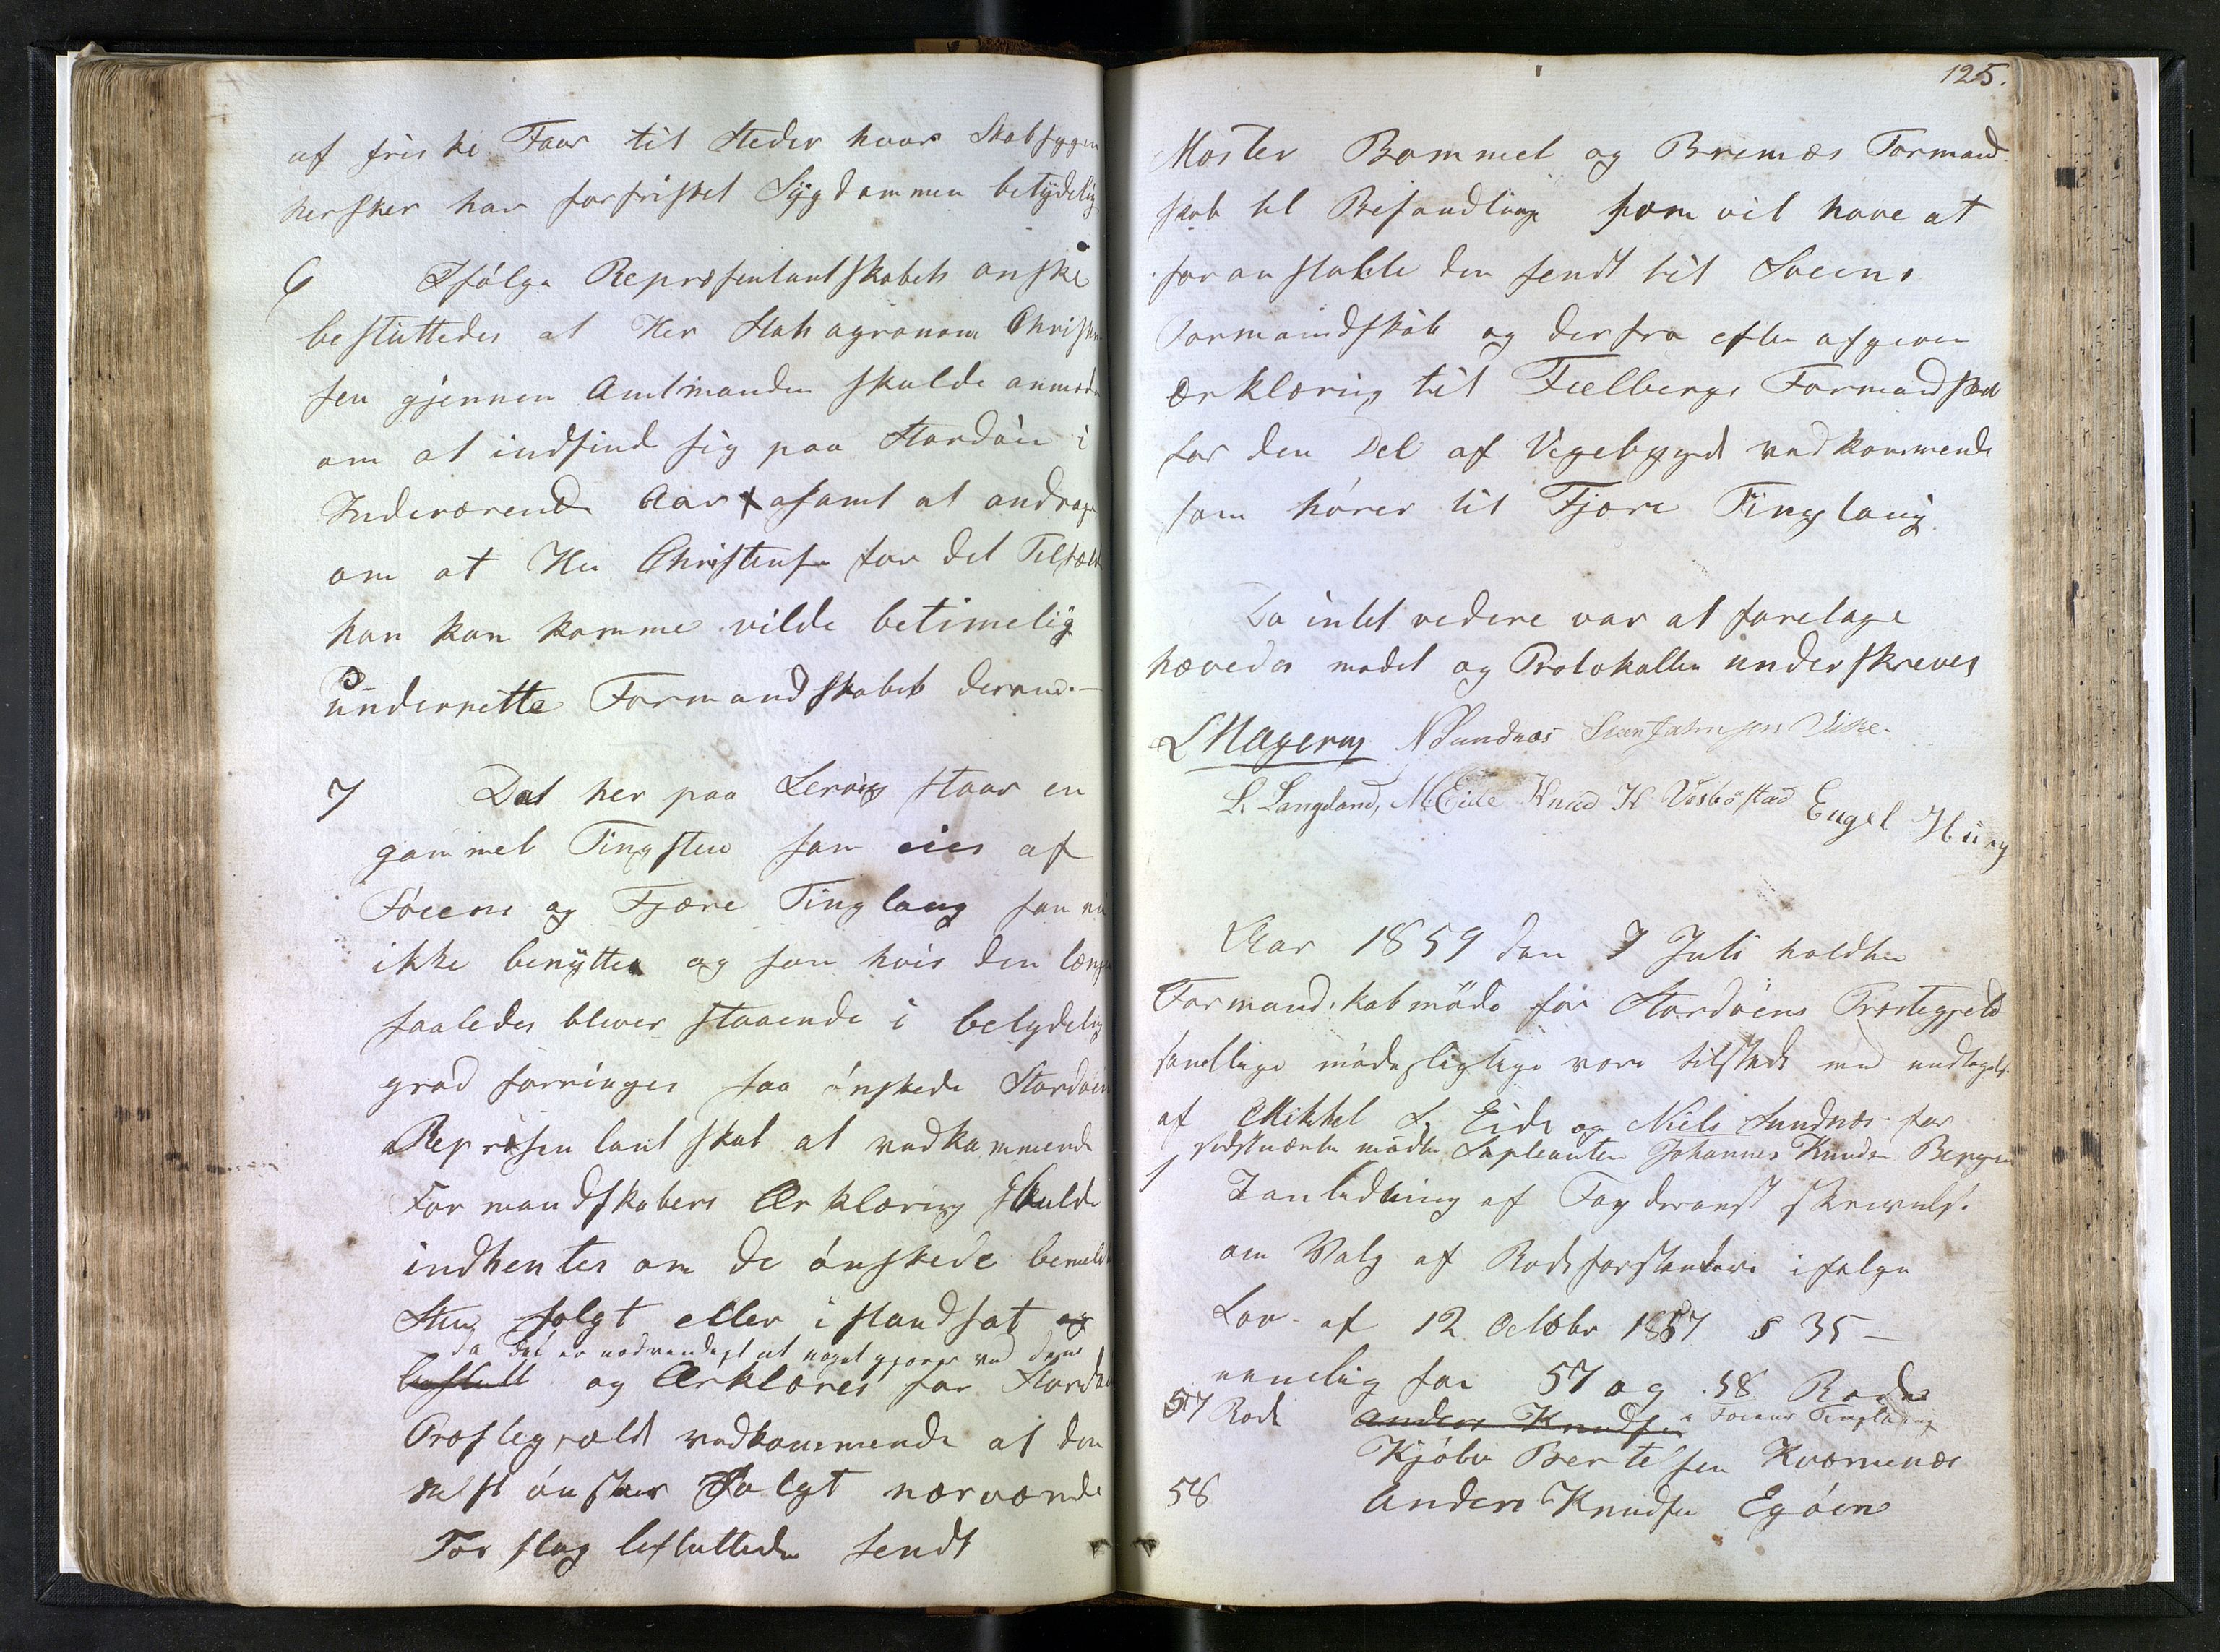 af friske Faar til Steder hvor Skabsygen
hersker har forfristet Sygdommen betydelig
6 Ifölge Repræsentantskabets ønske
besluttedes at Her Statsagronom Christen
sen gjennem Amtmanden skulde anmode
om at indfind sig paa Stordöen i
Indeværende Aar samt at andrage
om at Her Christensen for det Tilfælde
han kan komme vilde betimelig
underrette Formandskabet derom.—
7 Dat her paa Lervig staar en
gammel Tingstue som eies af
Föiens og Fjære Tinglaug som nu
ikke benyttes og som hvis den længe
saaledes bliver staaende i betydelig
grad forringes saa ønskede Stordöens
Repræsentantskab at vedkommende
Formandskabers Erklæring skulde
indhentes om de ønskede bemeldte
Stue solgt eller istandsat og
da det er nødvendigt at noget gjøres ved den
besluttet og Erklæres for Stordö
Præstegjælds vedkommende at den
helst ønskes Solgt nærværende
Forslag besluttedes sendt
125.
Moster Bømmel og Bremnæs Formand
skab til Behandling som vil have at
foranstalte den sendt til Föiens
Formandskab og derfra efter afgiven
Erklæring til Fielbergs Formandskab
for den Del af Vegebygd vedkommende
som hører til Fjære Tinglaug.
Da intet vedere var at foretage
hævedes mødet og Protokollen underskreves
L Magerøy N Sundnæs Sven Johnsen Vike.
L. Langeland, M. Eide Knud K Væsböstad Engel Huny
Aar 1859 den 7 Juli holdtes
Formandskabmöde for Stordöens Præstegjeld
samtlige mödepligtige vare tilstede med undtagelse
af Mikkel L. Eide og Niels Sundnæs for
sidstnævnte mödte Supleanten Johannes Knudsen Bergen
1 I anledning af Fogderiets skrivelse
om Valg af Rodeforstandere ifølge
Lov af 12 October 1857 § 35 —
nemlig for 57 og 58 Rode
i Föiens Tinglaug
57 Rode Anders Knudsen
Kjöbn Bertelsen Kværnenæs
58 Anders Knudsen Egöen